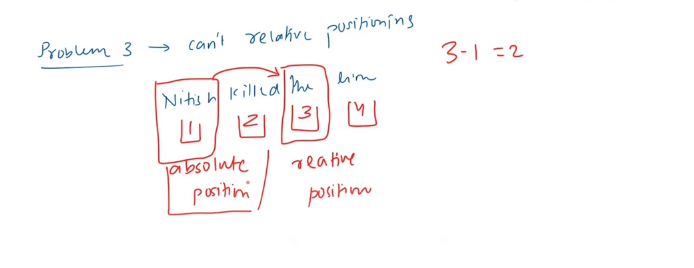 Problem 3 → can't relative positioning
3-1 = 2
Nitish killed the lion
1 2 3 4
absolute / reative
position position